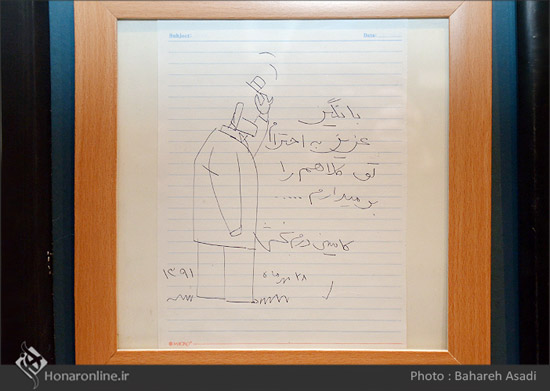 Subject:
Date:
عزیز به احترام
تو کلاهم را
بر میدارم .....
کامبیز درمبخش
۲۸ مهر ماه
۱۳۹۱
Honaronline.ir
Photo : Bahareh Asadi